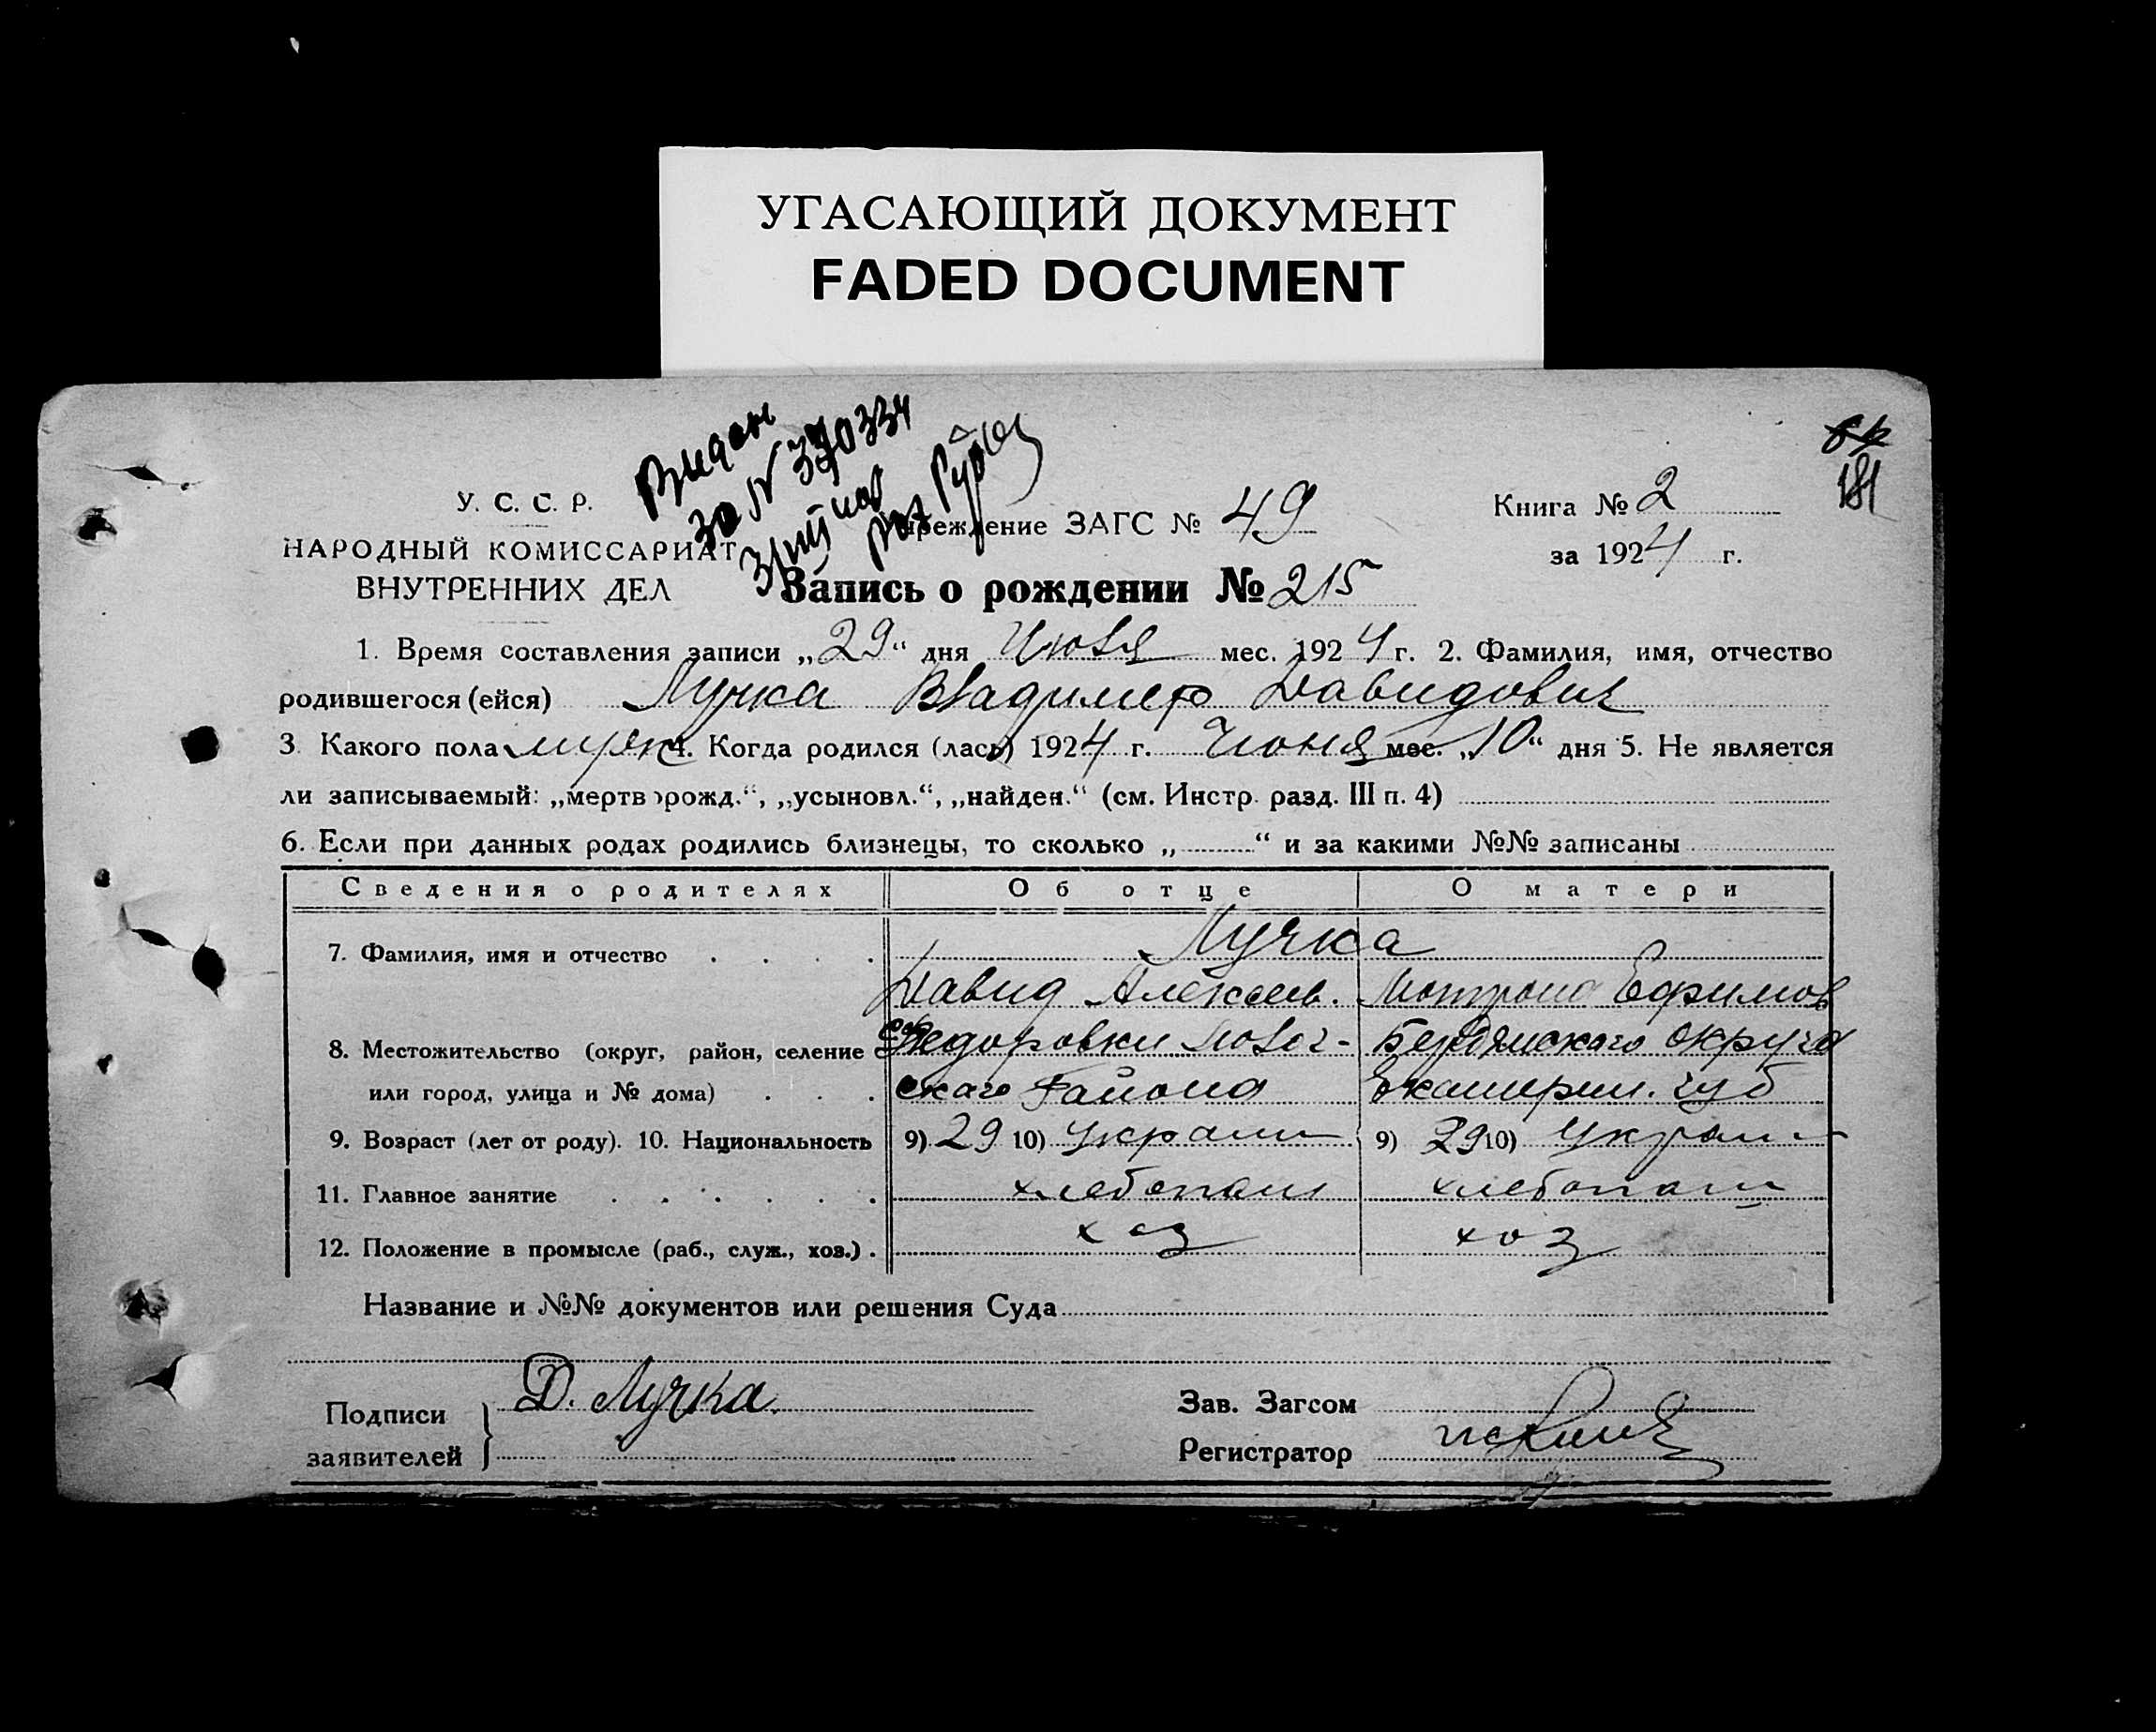 УГАСАЮЩИЙ ДОКУМЕНТ
FADED DOCUMENT
181
за № 370334
У. С. С. Р.
НАРОДНЫЙ КОМИССАРИАТ
ВНУТРЕННИХ ДЕЛ
Учреждение ЗАГС № 49
Книга № 2
за 1924 г.
Запись о рождении № 215
1. Время составления записи „29“ дня Июля мес. 1924 г. 2. Фамилия, имя, отчество
родившегося (ейся) Лучка Владимер Давидович
3. Какого пола муж 4. Когда родился (лась) 1924 г. Июня мес. „10“ дня 5. Не является
ли записываемый: „мертворожд.“, „усыновл.“, „найден.“ (см. Инстр. разд. III п. 4)
6. Если при данных родах родились близнецы, то сколько „ “ и за какими №№ записаны
Сведения о родителях Об отце О матери
7. Фамилия, имя и отчество Лучка
Давид Алексеев. Мотрона Ефимов
8. Местожительство (округ, район, селение Федоровки Бердянского округа
или город, улица и № дома) ского района Екатерин. губ
9. Возраст (лет от роду). 10. Национальность 9) 29 10) Украин 9) 29 10) Украин
11. Главное занятие хлебопаш хлебопаш
12. Положение в промысле (раб., служ., хоз.) хоз хоз
Название и №№ документов или решения Суда
Подписи заявителей Д. Лучка.
Зав. Загсом
Регистратор